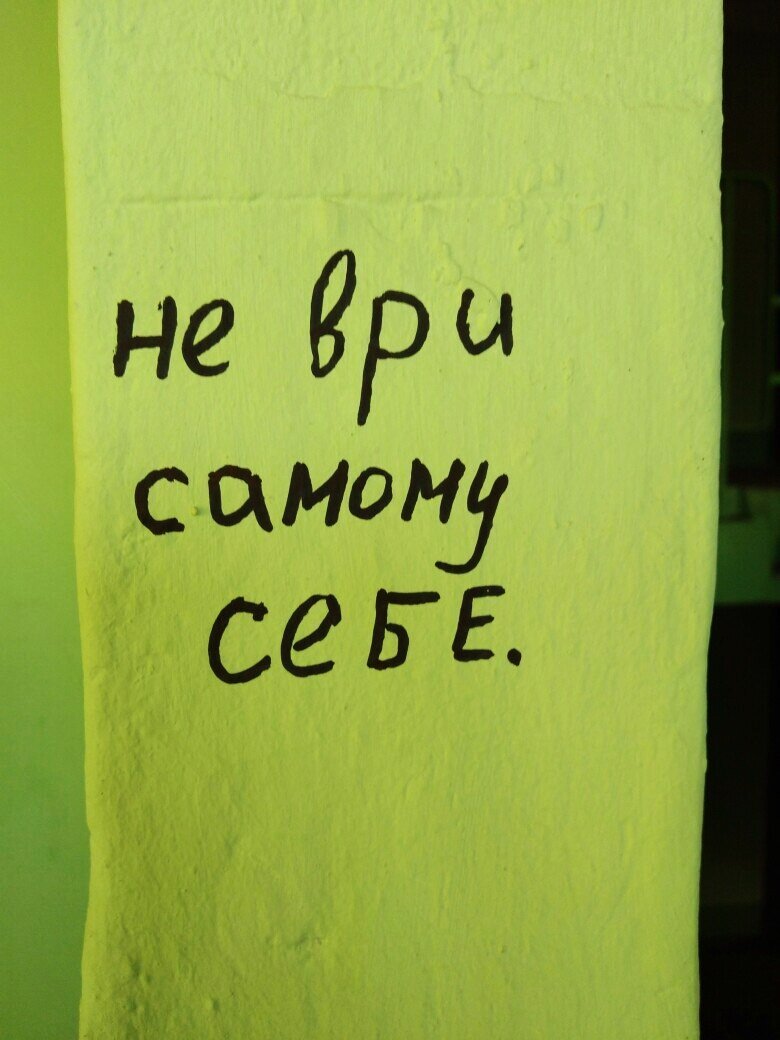 не ври
самому
себЕ.